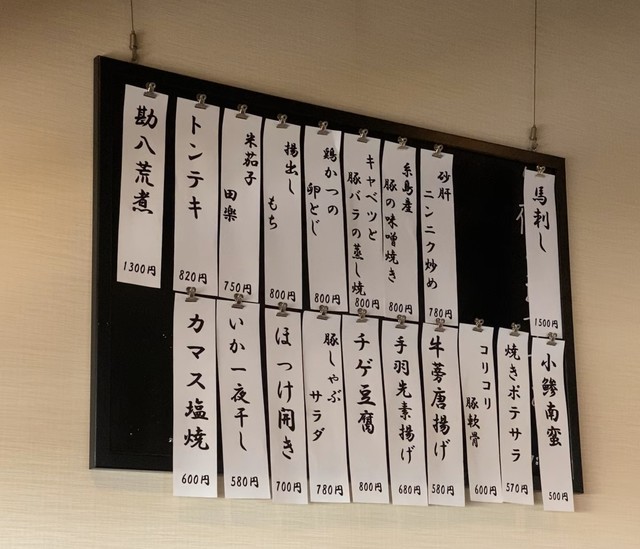 馬刺し
1500円
砂肝
ニンニク炒め
780円
糸島産
豚の味噌焼き
800円
キャベツと
豚バラの蒸し焼
800円
鶏かつの
卵とじ
800円
揚出し
もち
800円
米茄子
田楽
750円
トンテキ
820円
勘八荒煮
1300円
小鯵南蛮
500円
焼きポテサラ
570円
コリコリ
豚軟骨
600円
牛蒡唐揚げ
580円
手羽先素揚げ
680円
チゲ豆腐
800円
豚しゃぶ
サラダ
780円
ほっけ開き
700円
いか一夜干し
580円
カマス塩焼
600円